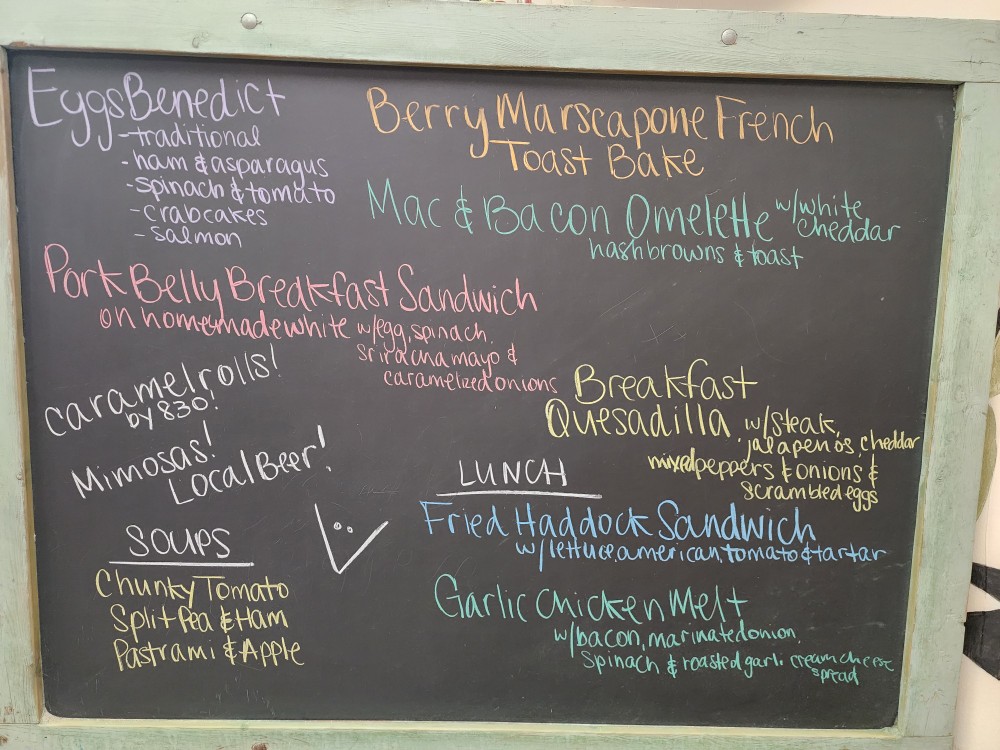 Eggs Benedict
- traditional
- ham & asparagus
- spinach & tomato
- crabcakes
- salmon
Berry Marscapone French
Toast Bake
Mac & Bacon Omelette w/white
cheddar
hashbrowns & toast
Pork Belly Breakfast Sandwich
on homemade white w/egg, spinach,
sriracha mayo &
caramelized onions
caramel rolls!
by 830!
Mimosas!
Local Beer!
Breakfast
Quesadilla w/steak,
jalapenos, cheddar
mixed peppers & onions &
scrambled eggs
SOUPS
Chunky Tomato
Split Pea & Ham
Pastrami & Apple
LUNCH
Fried Haddock Sandwich
w/lettuce, american, tomato & tartar
Garlic Chicken Melt
w/bacon, marinated onion,
spinach & roasted garlic cream cheese
spread